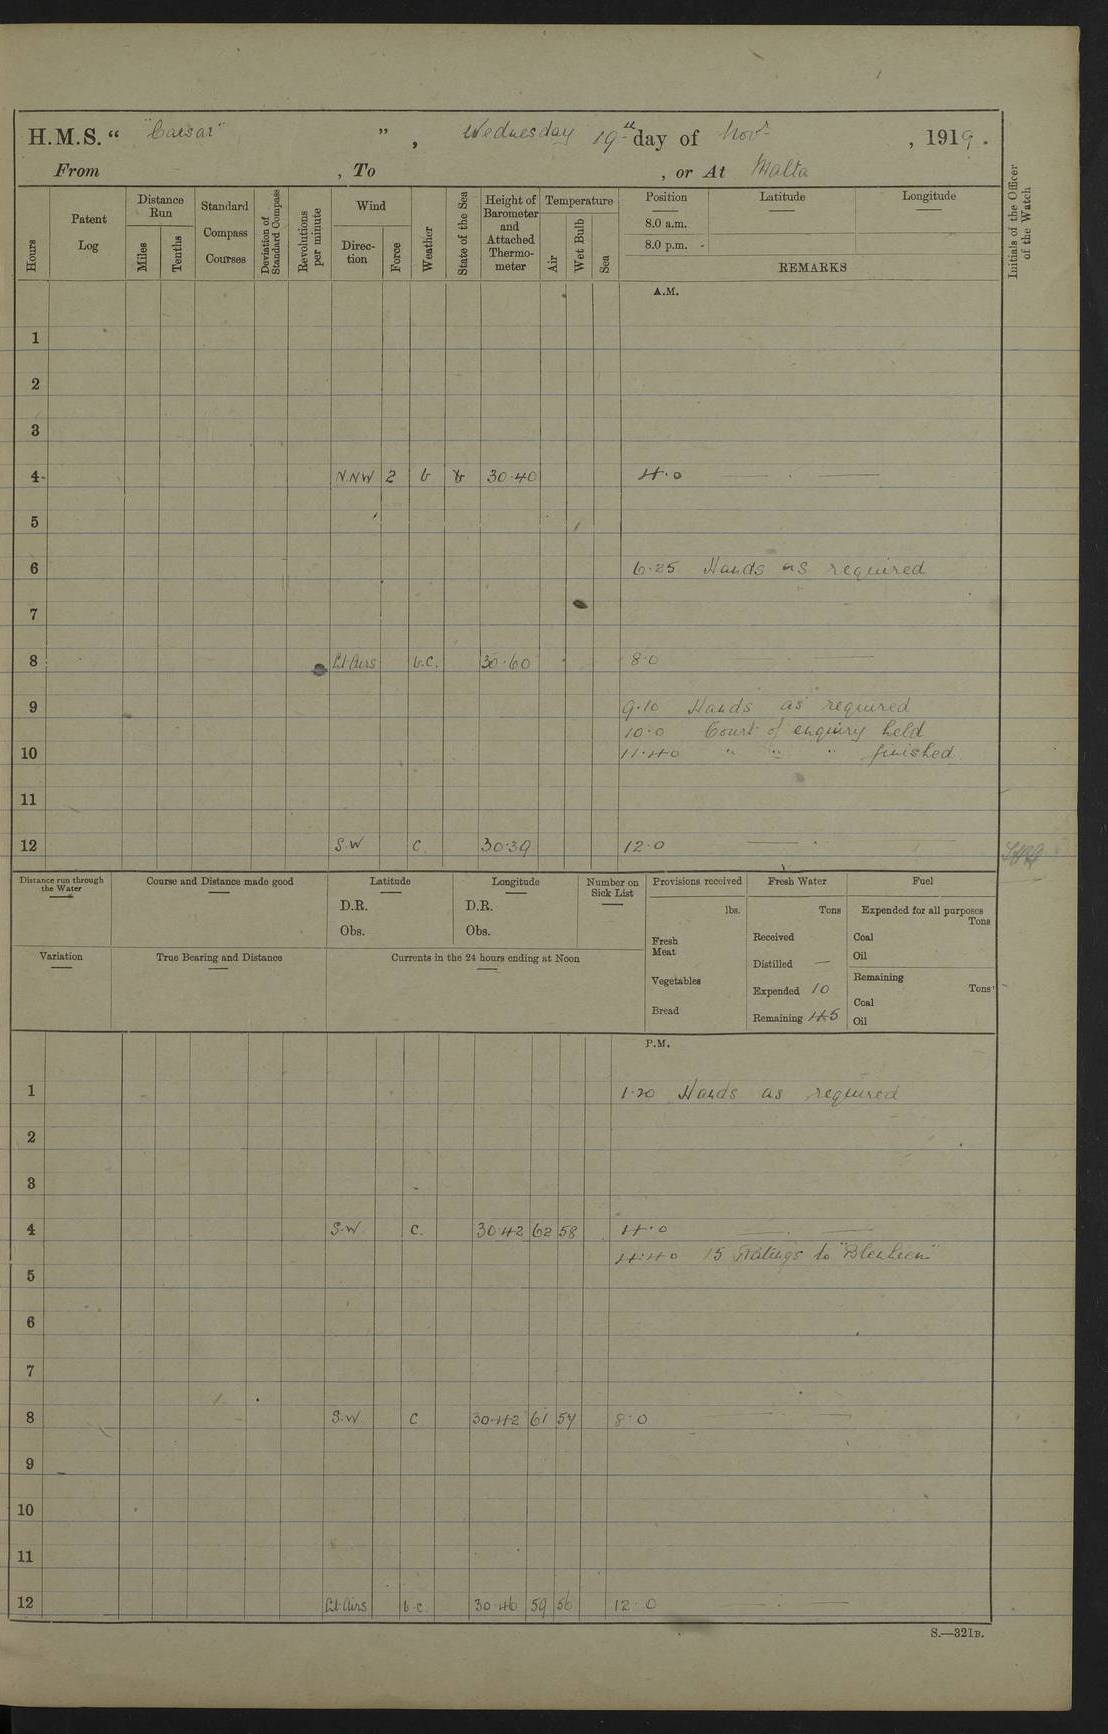 H.M.S. " "Caesar" " , Wednesday 19th day of Novr , 1919.
From , To , or At Malta
Hours Patent Log Distance Run Miles Tenths Standard Compass Courses Deviation of Standard Compass Revolutions per minute Wind Direction Force Weather State of the Sea Height of Barometer and Attached Thermometer Temperature Air Wet Bulb Sea Position Latitude Longitude Initials of the Officer of the Watch
8.0 a.m.
8.0 p.m. -
REMARKS
A.M.
1
2
3
4 N.NW 2 b 30.40 4.0 — . —
5
6 6.25 Hands as required
7
8 Lt Airs b.c. 30.60 8.0 —
9 9.10 Hands as required
10.0 Court of enquiry held
10 11.40 " " " finished
11
12 S.W C. 30.39 12.0 —
Distance run through the Water Course and Distance made good Latitude Longitude Number on Sick List Provisions received Fresh Water Fuel
D.R. D.R. lbs. Tons Expended for all purposes Tons
Obs. Obs. Fresh Meat Received Coal
Distilled — Oil
Variation True Bearing and Distance Currents in the 24 hours ending at Noon Vegetables Expended 10 Remaining Tons
Bread Remaining 45 Coal
Oil
P.M.
1 1.20 Hands as required
2
3
4 S.W. C. 30.42 62 58 4.0 —
4.40 15 Ratings to "Blenheim"
5
6
7
8 S.W C 30.42 61 57 8.0 —
9
10
11
12 Lt Airs b.c. 30.46 59 56 12.0 —
S.—321B.